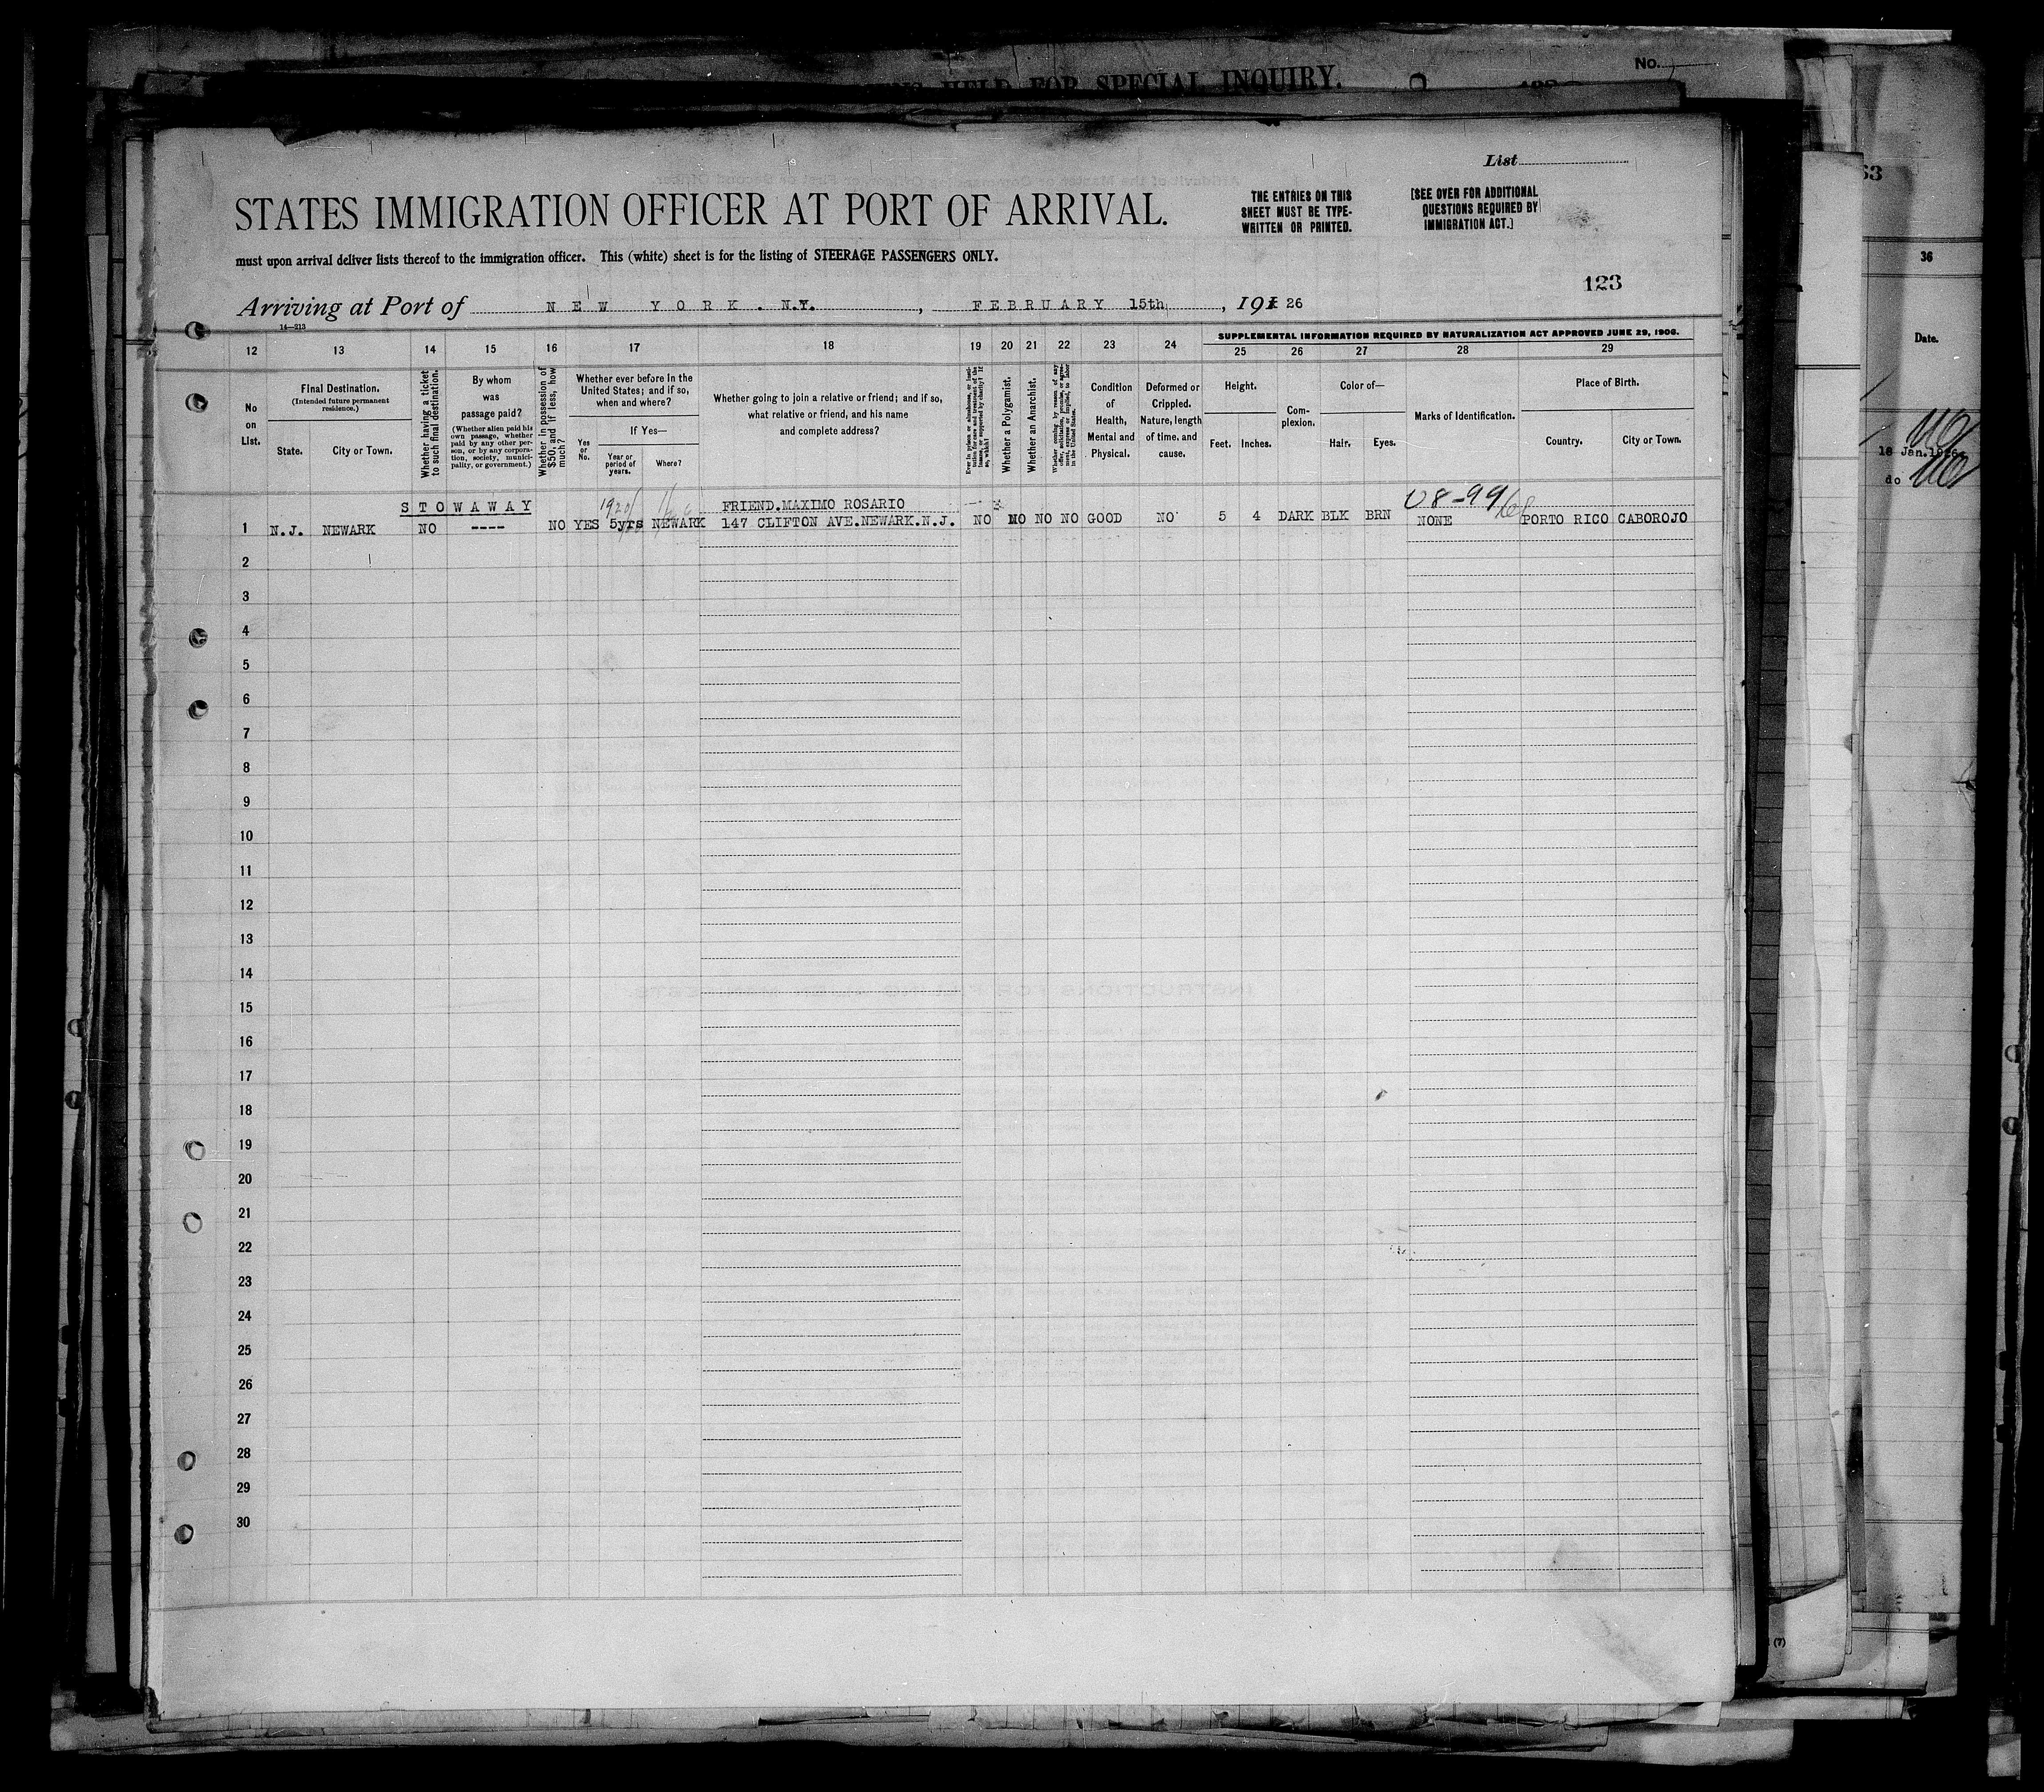 HELD FOR SPECIAL INQUIRY.
No.
List
STATES IMMIGRATION OFFICER AT PORT OF ARRIVAL.
THE ENTRIES ON THIS
SHEET MUST BE TYPE-
WRITTEN OR PRINTED.
[SEE OVER FOR ADDITIONAL
QUESTIONS REQUIRED BY
IMMIGRATION ACT.]
must upon arrival deliver lists thereof to the immigration officer. This (white) sheet is for the listing of STEERAGE PASSENGERS ONLY.
123
Arriving at Port of NEW YORK. N.Y. , FEBRUARY 15th , 191 26
14—213
SUPPLEMENTAL INFORMATION REQUIRED BY NATURALIZATION ACT APPROVED JUNE 29, 1906.
12 13 14 15 16 17 18 19 20 21 22 23 24 25 26 27 28 29
No on List.
Final Destination.
(Intended future permanent residence.)
State. City or Town.
Whether having a ticket to such final destination.
By whom was passage paid?
(Whether alien paid his own passage, whether paid by any other person, or by any corporation, society, municipality, or government.)
Whether in possession of $50, and if less, how much?
Whether ever before in the United States; and if so, when and where?
Yes or No.
If Yes—
Year or period of years. Where?
Whether going to join a relative or friend; and if so, what relative or friend, and his name and complete address?
Ever in prison or almshouse, or institution for care and treatment of the insane, or supported by charity? If so, which?
Whether a Polygamist.
Whether an Anarchist.
Whether coming by reason of any offer, solicitation, promise, or agreement, express or implied, to labor in the United States.
Condition of Health, Mental and Physical.
Deformed or Crippled. Nature, length of time, and cause.
Height.
Feet. Inches.
Complexion.
Color of—
Hair. Eyes.
Marks of Identification.
Place of Birth.
Country. City or Town.
STOWAWAY 1920/ FRIEND.MAXIMO ROSARIO 08-99
1 N.J. NEWARK NO ---- NO YES 5yrs NEWARK 147 CLIFTON AVE.NEWARK.N.J. NO NO NO NO GOOD NO 5 4 DARK BLK BRN NONE PORTO RICO CABOROJO
2
3
4
5
6
7
8
9
10
11
12
13
14
15
16
17
18
19
20
21
22
23
24
25
26
27
28
29
30
63
36
Date.
18 Jan.1926
do
(7)